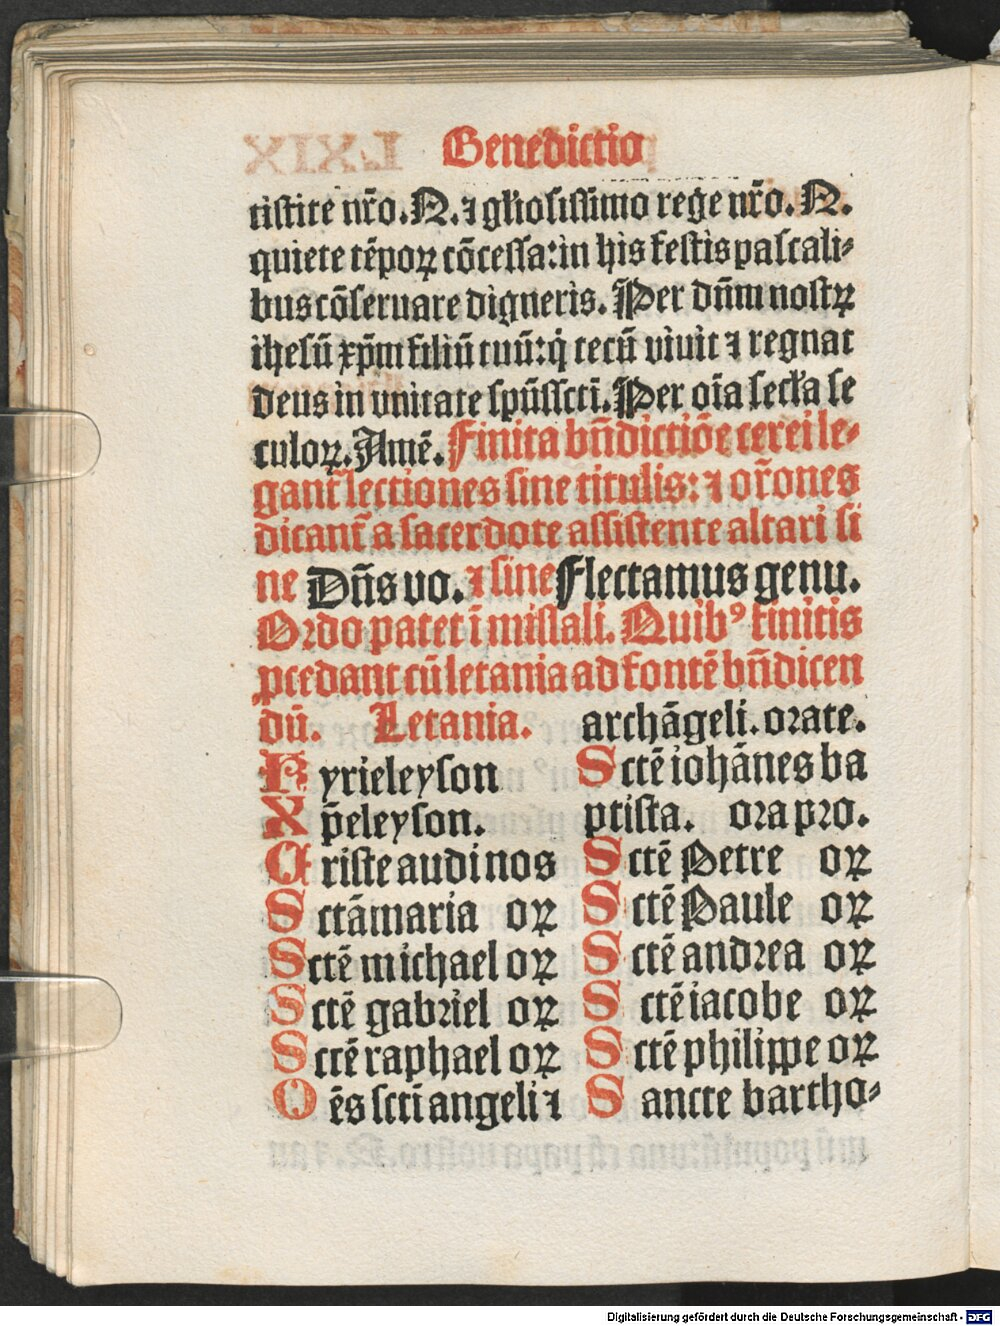 Benedictio
tistite nr̃o. N. ⁊ gl'iosissimo rege nr̃o. N.
quiete tẽpoꝝ cõcessa: in his festis pascali⸗
bus cõseruare digneris. Per dñm nostꝝ
ihesũ xp̃m filiũ tuũ: q̇ tecũ viuit ⁊ regnat
deus in vnitate spũssctĩ. Per oĩa secl'a se
culoꝝ. Amẽ. Finita bñdictiõe cerei le⸗
gant̃ lectiones sine titulis: ⁊ or̃ones
dicant̃ a sacerdote assistente altari si
ne Dñs vo. ⁊ sine Flectamus genu.
Ordo patet ĩ missali. Quibꝰ finitis
ꝓcedant cũ letania ad fontẽ bñdicen
dũ. Letania.
Kyrieleyson
Xp̃eleyson.
Criste audi nos
Sctã maria oꝝ
Sctẽ michael oꝝ
Sctẽ gabriel oꝝ
Sctẽ raphael oꝝ
Oẽs scti angeli ⁊
archãgeli. orate.
Sctẽ iohãnes ba
ptista. ora pro.
Sctẽ Petre oꝝ
Sctẽ Paule oꝝ
Sctẽ andrea oꝝ
Sctẽ iacobe oꝝ
Sctẽ philippe oꝝ
Sancte bartho⸗
Digitalisierung gefördert durch die Deutsche Forschungsgemeinschaft - DFG